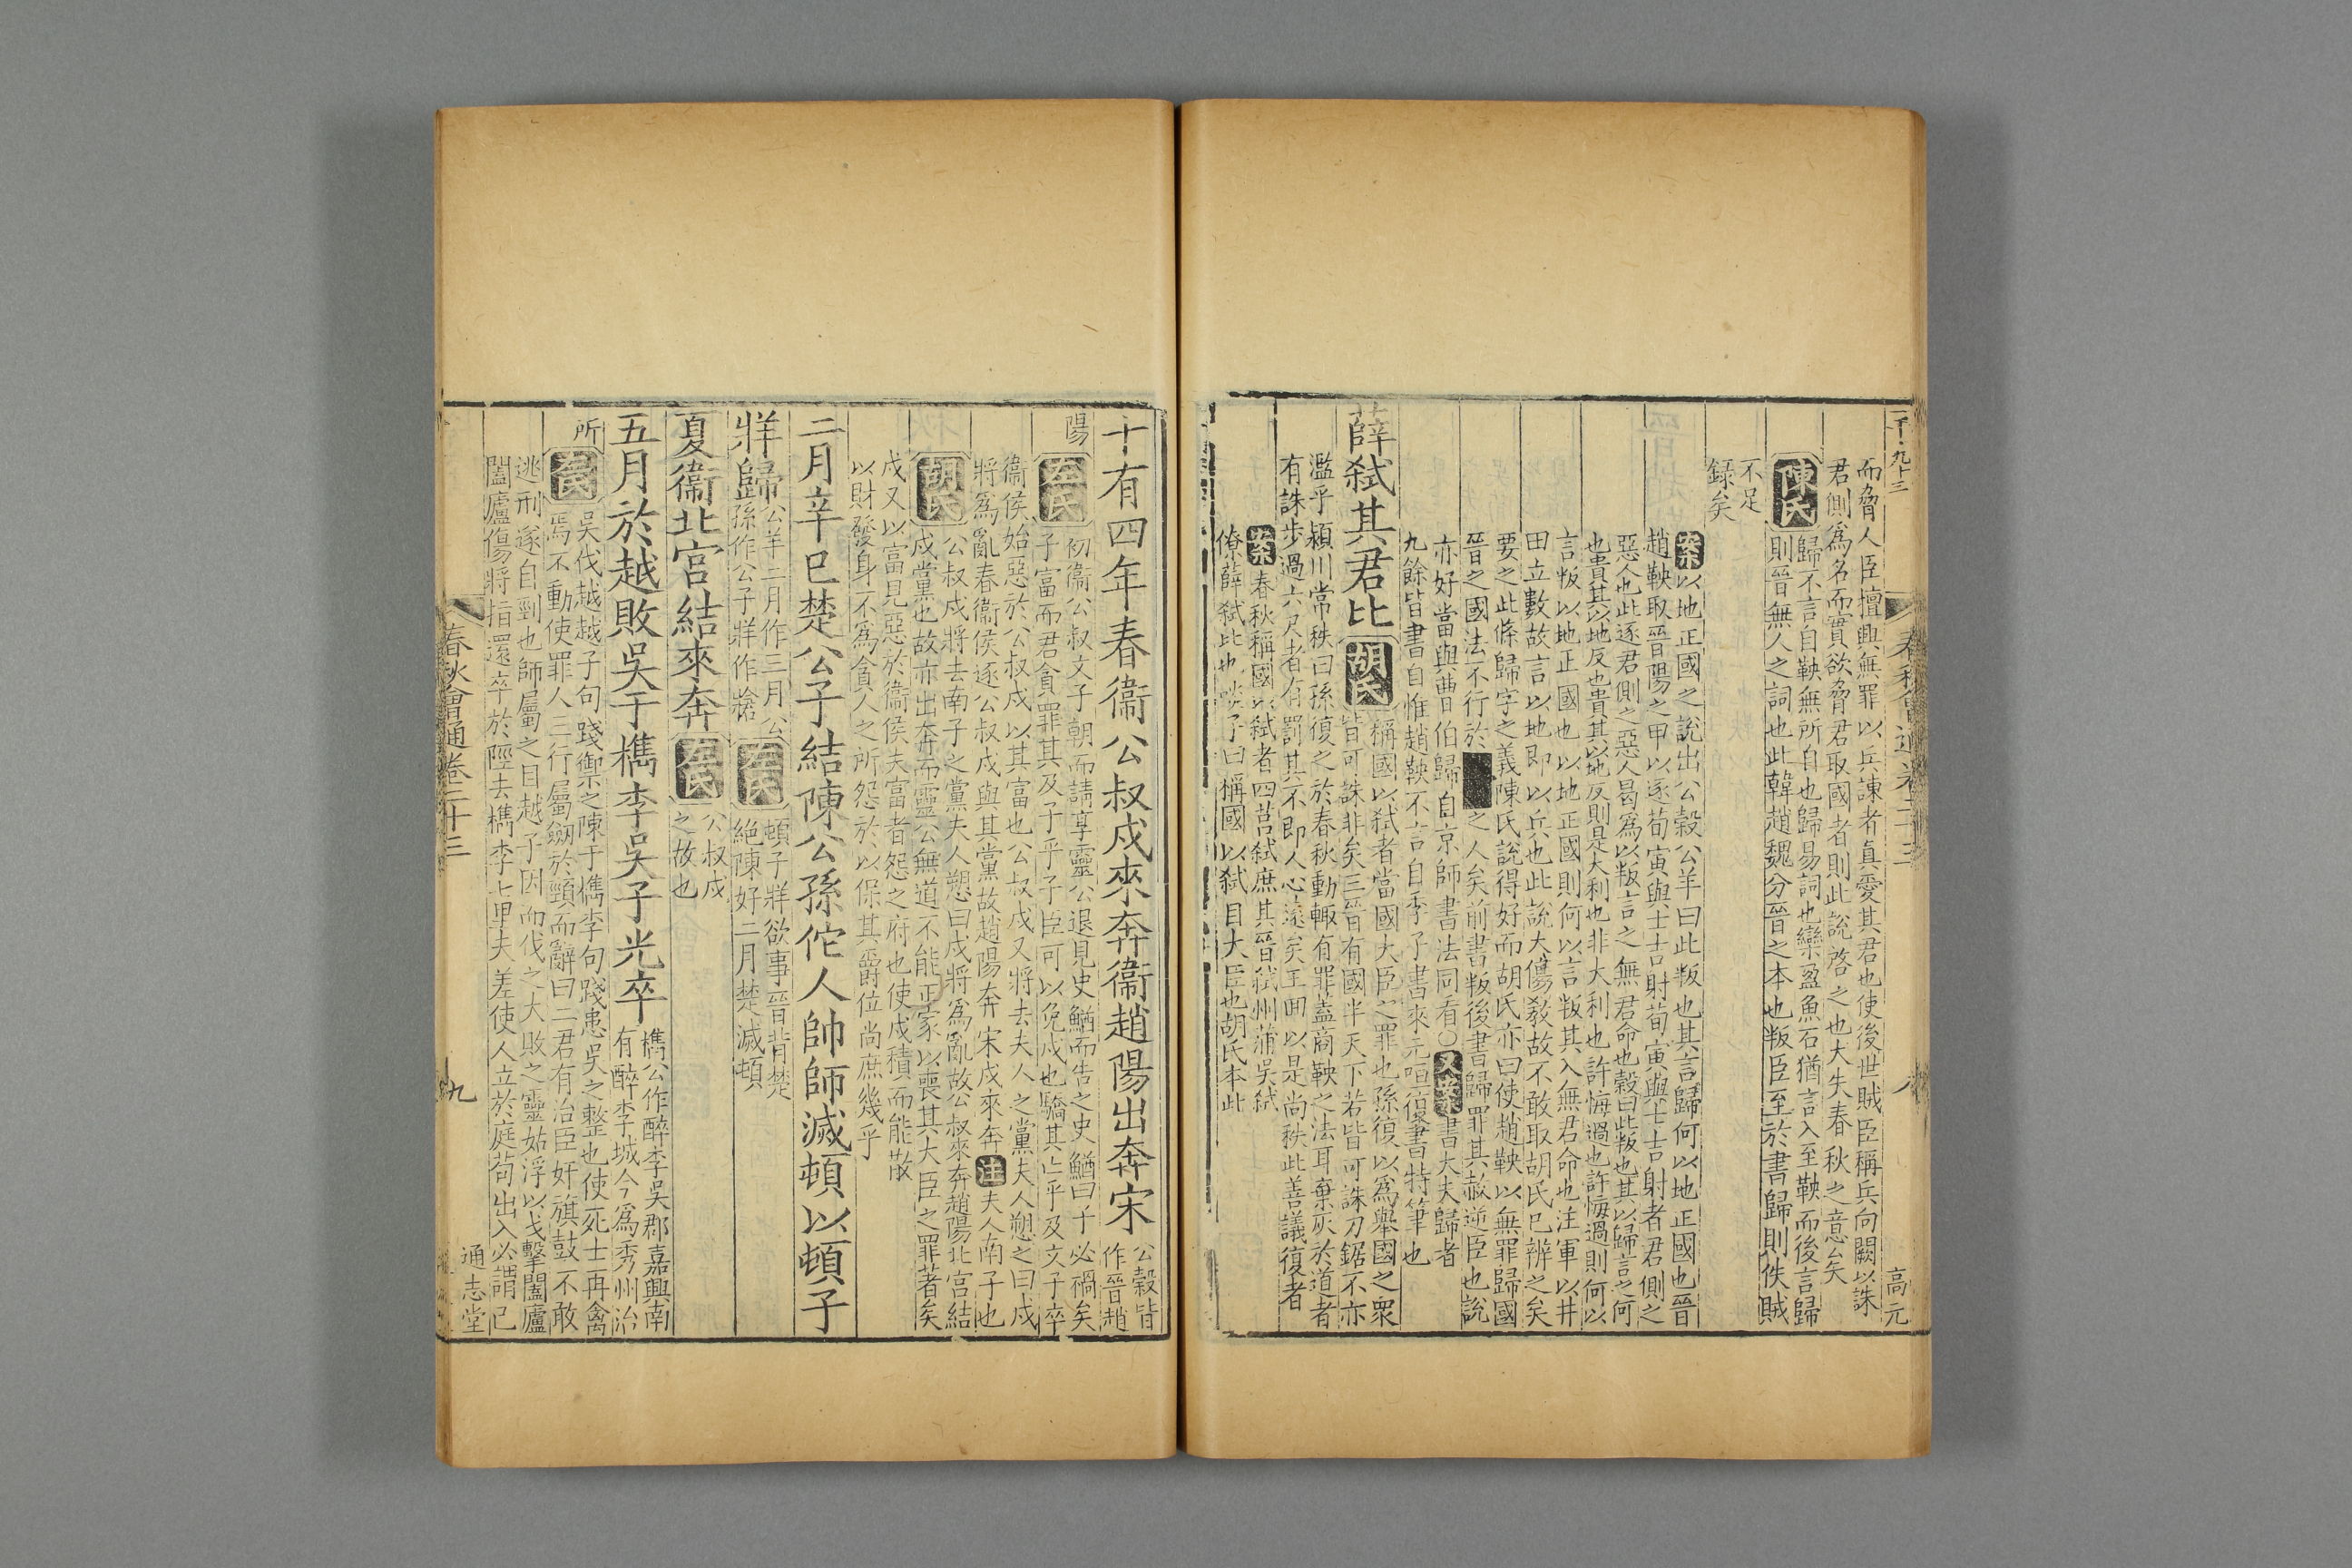 而脅人臣擅興無罪以兵諫者真愛其君也使後世賊臣稱兵向闕以誅
君側爲名而實欲脅君取國者則此說啓之也大失春秋之意矣
陳氏
歸不言自鞅無所自也歸易詞也欒盈魚石猶言入至鞅而後言歸
則晉無人之詞也此韓趙魏分晉之本也叛臣至於書歸則佚賊
不足
録矣
案以地正國之說出公穀公羊曰此叛也其言歸何以地正國也晉
趙鞅取晉陽之甲以逐荀寅與士吉射荀寅與士吉射者君側之
惡人也此逐君側之惡人曷爲以叛言之無君命也穀曰此叛也其以歸言之何
也貴其以地反也貴其以地反則是大利也非大利也許悔過也許悔過則何以
言叛以地正國也以地正國則何以言叛其入無君命也注軍以井
田立數故言以地即以兵也此說大傷敎故不敢取胡氏已辨之矣
要之此條歸字之義陳氏說得好而胡氏亦曰使趙鞅以無罪歸國
晉之國法不行於之人矣前書叛後書歸罪其赦逆臣也說
亦好當與曹伯歸自京師書法同看〇又案書大夫歸者
九餘皆書自惟趙鞅不言自季子書來元咺復書特筆也
薛弑其君比
胡氏
稱國以弑者當國大臣之罪也孫復以爲舉國之衆
皆可誅非矣三晉有國半天下若皆可誅刀鋸不亦
濫乎潁川常秩曰孫復之於春秋動輒有罪蓋商鞅之法耳棄灰於道者
有誅步過六尺者有罰其不即人心遠矣王回以是尚秩此善議復者
案春秋稱國以弑者四莒弑庶其晉弑州蒲吳弑
僚薛弑比也啖子曰稱國以弑目大臣也胡氏本此
春秋會通卷二十三
八
高元
十有四年春衞公叔戍來奔衞趙陽出奔宋
公穀皆
作晉趙
陽
左氏
初衞公叔文子朝而請享靈公退見史鰌而告之史鰌曰子必禍矣
子富而君貪罪其及子乎子臣可以免戍也驕其亡乎及文子卒
衞侯始惡於公叔戍以其富也公叔戍又將去夫人之黨夫人愬之曰戍
將爲亂春衞侯逐公叔戍與其黨故趙陽奔宋戍來奔注夫人南子也
胡氏
公叔戍將去南子之黨夫人愬曰戍將爲亂故公叔來奔趙陽北宫結
戍黨也故亦出奔而靈公無道不能正家以喪其大臣之罪著矣
戍又以富見惡於衞侯夫富者怨之府也使戍積而能散
以財發身不爲貪人之所怨於以保其爵位尚庶幾乎
二月辛巳楚公子結陳公孫佗人帥師滅頓以頓子
牂歸
公羊二月作三月公
孫作公子牂作牄
左氏
頓子牂欲事晉背楚
絶陳好二月楚滅頓
夏衞北宫結來奔
左氏
公叔戍
之故也
五月於越敗吳于檇李吳子光卒
檇公作醉李吳郡嘉興南
有醉李城今爲秀州治
所
左氏
吳伐越越子句踐禦之陳于檇李句踐患吳之整也使死士再禽
焉不動使罪人三行屬劒於頸而辭曰二君有治臣奸旗鼓不敢
逃刑遂自剄也師屬之目越子因而伐之大敗之靈姑浮以戈擊闔廬
闔廬傷將指還卒於陘去檇李七里夫差使人立於庭苟出入必謂己
春秋會通卷二十三
九
通志堂